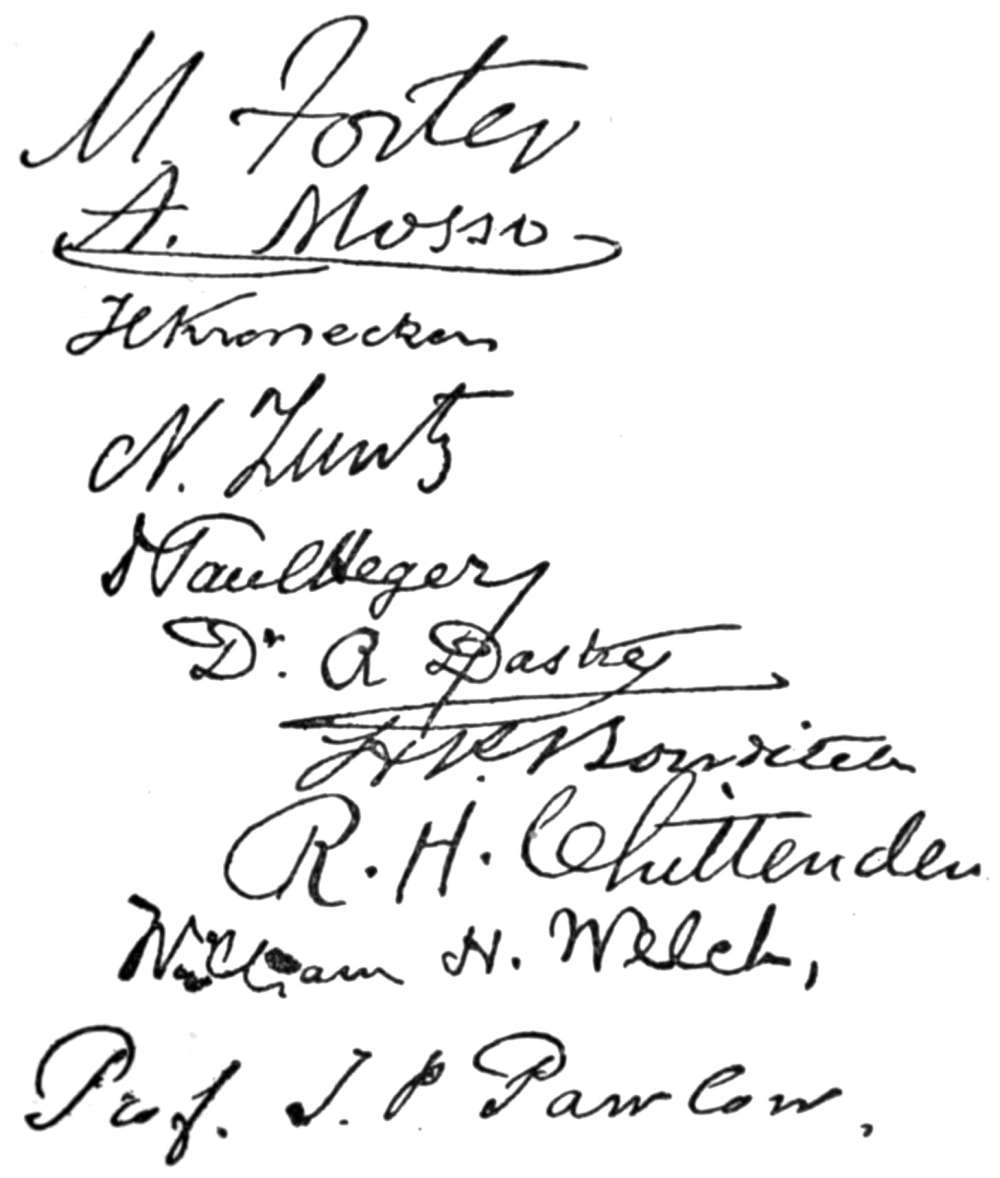 M. Foster
A. Mosso
H Kronecker
N. Zuntz
Dr Paul Heger
Dr. A Dastre
H. P. Bowditch
R. H. Chittenden
William H. Welch,
Prof. J. P. Pawlow.